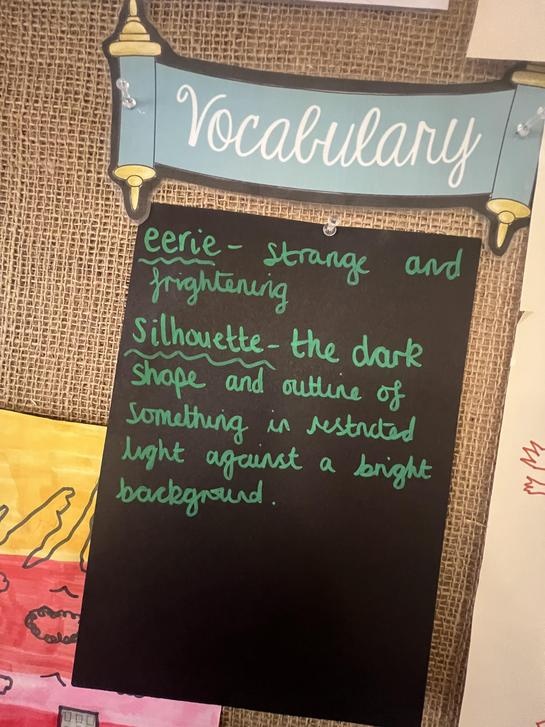 Vocabulary
eerie - strange and
frightening
silhouette - the dark
shape and outline of
something in restricted
light against a bright
background.